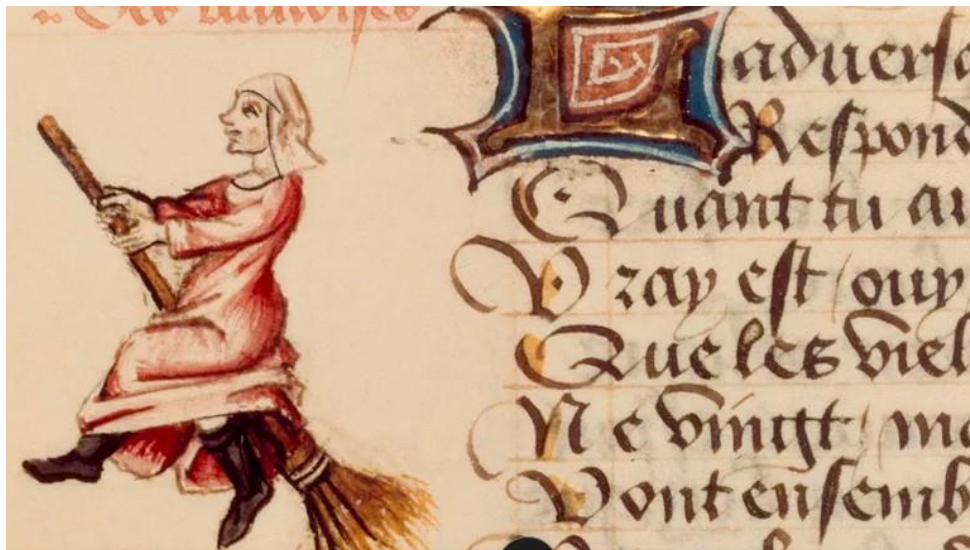 Laduersa
Respond
Quant tu au
Vray est / ouy
Que les viel
Ne vingt / ma
Vont ensemb